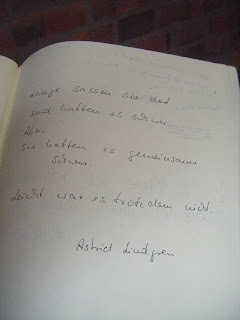 Lange sassen sie da
und hatten es schwer
Aber
sie hatten es gemeinsam
schwer.
Leicht war es trotzdem nicht.
Astrid Lindgren